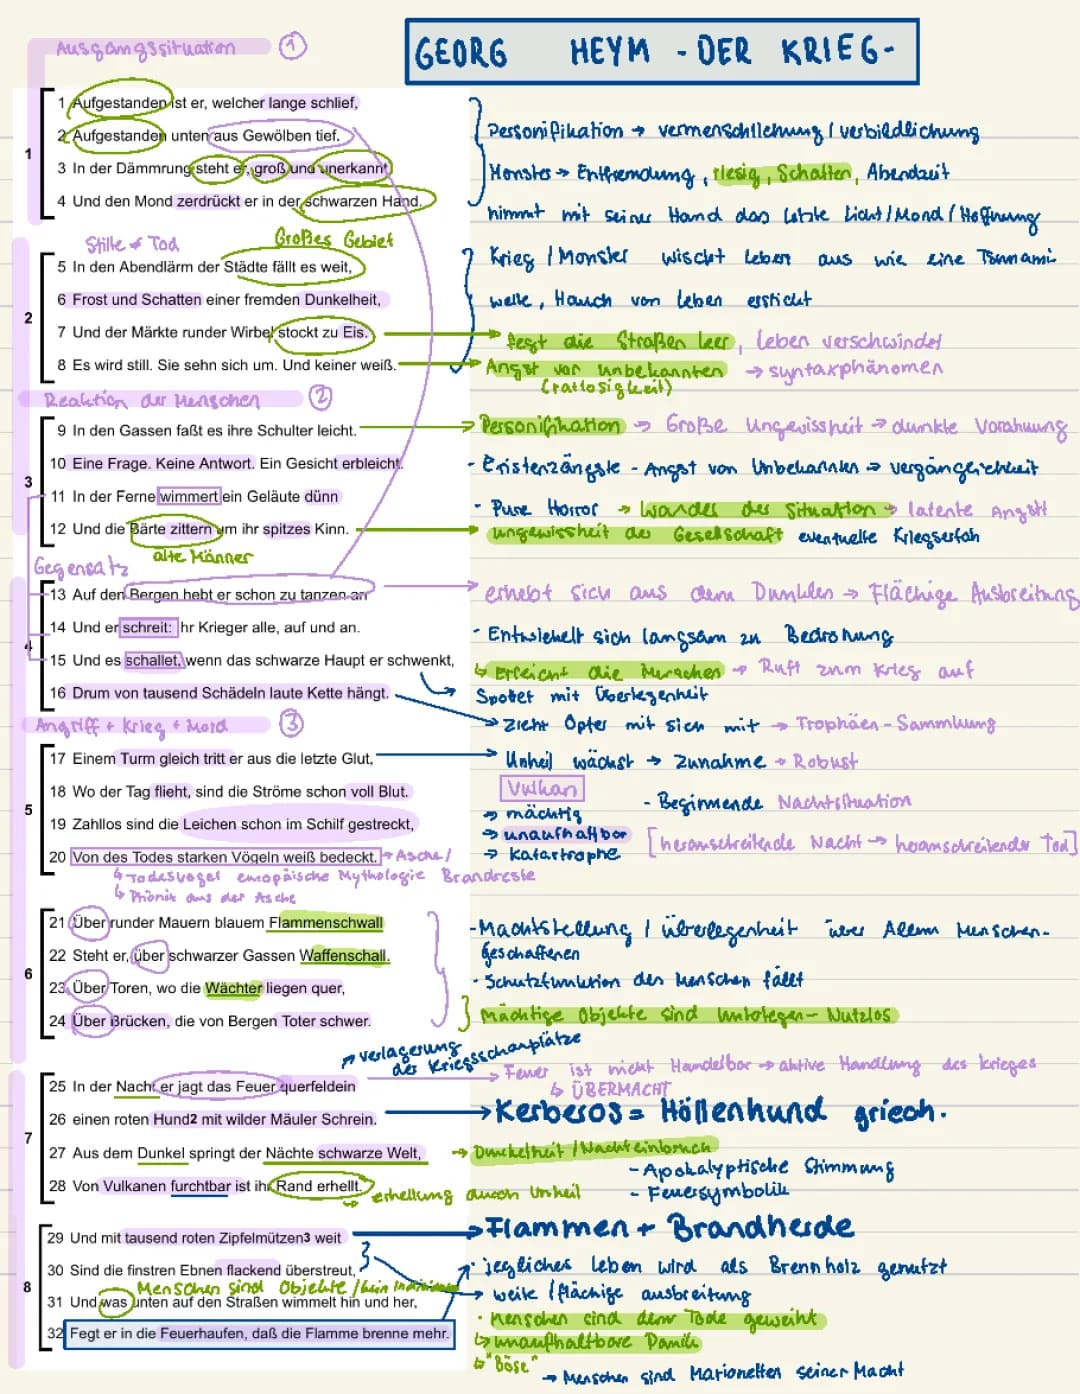 GEORG HEYM - DER KRIEG-
Ausgangssituation 1
1
1 Aufgestanden ist er, welcher lange schlief,
2 Aufgestanden unten aus Gewölben tief.
3 In der Dämmrung steht er, groß und unerkannt
4 Und den Mond zerdrückt er in der schwarzen Hand.
Personifikation → vermenschlichung / verbildlichung
Monster → Entfremdung, riesig, Schatten, Abendzeit
nimmt mit seiner Hand das letzte Licht / Mond / Hoffnung
Stille + Tod
Großes Gebiet
2
5 In den Abendlärm der Städte fällt es weit,
6 Frost und Schatten einer fremden Dunkelheit,
7 Und der Märkte runder Wirbel stockt zu Eis.
8 Es wird still. Sie sehn sich um. Und keiner weiß.
Krieg / Monster wischt Leben aus wie eine Tsunami
welle, Hauch von Leben erstickt
→ fegt die Straßen leer, Leben verschwindet
→ Angst vor unbekannten → syntaxphänomen
(ratlosigkeit)
Reaktion der Menschen 2
3
9 In den Gassen faßt es ihre Schulter leicht.
10 Eine Frage. Keine Antwort. Ein Gesicht erbleicht.
11 In der Ferne wimmert ein Geläute dünn
12 Und die Bärte zittern um ihr spitzes Kinn.
alte Männer
→ Personifikation → Große Ungewissheit → dunkle Vorahnung
- Existenzängste - Angst von Unbekannten → vergänglichkeit
- Pure Horror → Wandel der Situation → latente Angst
→ ungewissheit der Gesellschaft eventuelle Kriegserfah
Gegensatz
4
13 Auf den Bergen hebt er schon zu tanzen an
14 Und er schreit: Ihr Krieger alle, auf und an.
15 Und es schallet, wenn das schwarze Haupt er schwenkt,
16 Drum von tausend Schädeln laute Kette hängt.
→ erhebt sich aus dem Dunklen → Flächige Ausbreitung
- Entwickelt sich langsam zu Bedrohung
↳ Erreicht die Menschen → Ruft zum Krieg auf
Spottet mit Überlegenheit
→ zieht Opfer mit sich mit → Trophäen-Sammlung
Angriff + Krieg + Mord 3
5
17 Einem Turm gleich tritt er aus die letzte Glut,
18 Wo der Tag flieht, sind die Ströme schon voll Blut.
19 Zahllos sind die Leichen schon im Schilf gestreckt,
20 Von des Todes starken Vögeln weiß bedeckt.
→ Asche / Brandreste
↳ Todesvogel europäische Mythologie
↳ Phönix aus der Asche
→ Unheil wächst → Zunahme → Robust
Vulkan
→ mächtig
→ unaufhaltbar
→ Katastrophe
- Beginnende Nachtsituation
[heranschreitende Nacht → heranschreitender Tod]
6
21 Über runder Mauern blauem Flammenschwall
22 Steht er, über schwarzer Gassen Waffenschall.
23 Über Toren, wo die Wächter liegen quer,
24 Über Brücken, die von Bergen Toter schwer.
- Machtstellung / überlegenheit über Allem Menschen-
geschaffenen
- Schutzfunktion der Menschen fällt
mächtige Objekte sind unterlegen - Nutzlos
→ verlagerung der Kriegsschauplätze
7
25 In der Nacht er jagt das Feuer querfeldein
26 einen roten Hund2 mit wilder Mäuler Schrein.
27 Aus dem Dunkel springt der Nächte schwarze Welt,
28 Von Vulkanen furchtbar ist ihr Rand erhellt.
→ Feuer ist nicht Handelbar → aktive Handlung des krieges
↳ ÜBERMACHT
→ Kerberos = Höllenhund griech.
→ Dunkelheit / Nachteinbruch
- Apokalyptische Stimmung
- Feuersymbolik
→ erhellung durch Unheil
8
29 Und mit tausend roten Zipfelmützen3 weit
30 Sind die finstren Ebnen flackend überstreut,
Menschen sind Objekte / kein Individuum
31 Und was unten auf den Straßen wimmelt hin und her,
32 Fegt er in die Feuerhaufen, daß die Flamme brenne mehr.
→ Flammen + Brandherde
- jegliches Leben wird als Brennholz genutzt
→ weite / flächige ausbreitung
- Menschen sind dem Tode geweiht
↳ unaufhaltbare Panik
↳ "Böse"
→ Menschen sind Marionetten seiner Macht